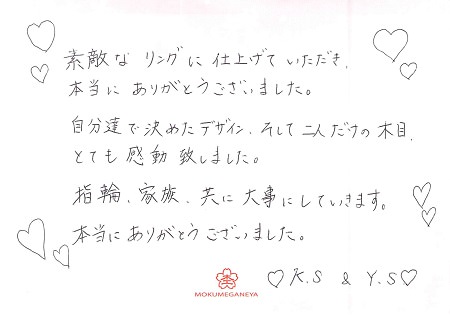 素敵な リングに 仕上げて いただき、
本当に ありがとうございました。
自分達で決めたデザイン、そして 二人だけの 木目、
とても 感動 致しました。
指輪、家族、共に 大事にしていきます。
本当に ありがとうございました。
♡ K.S & Y.S ♡
MOKUMEGANEYA